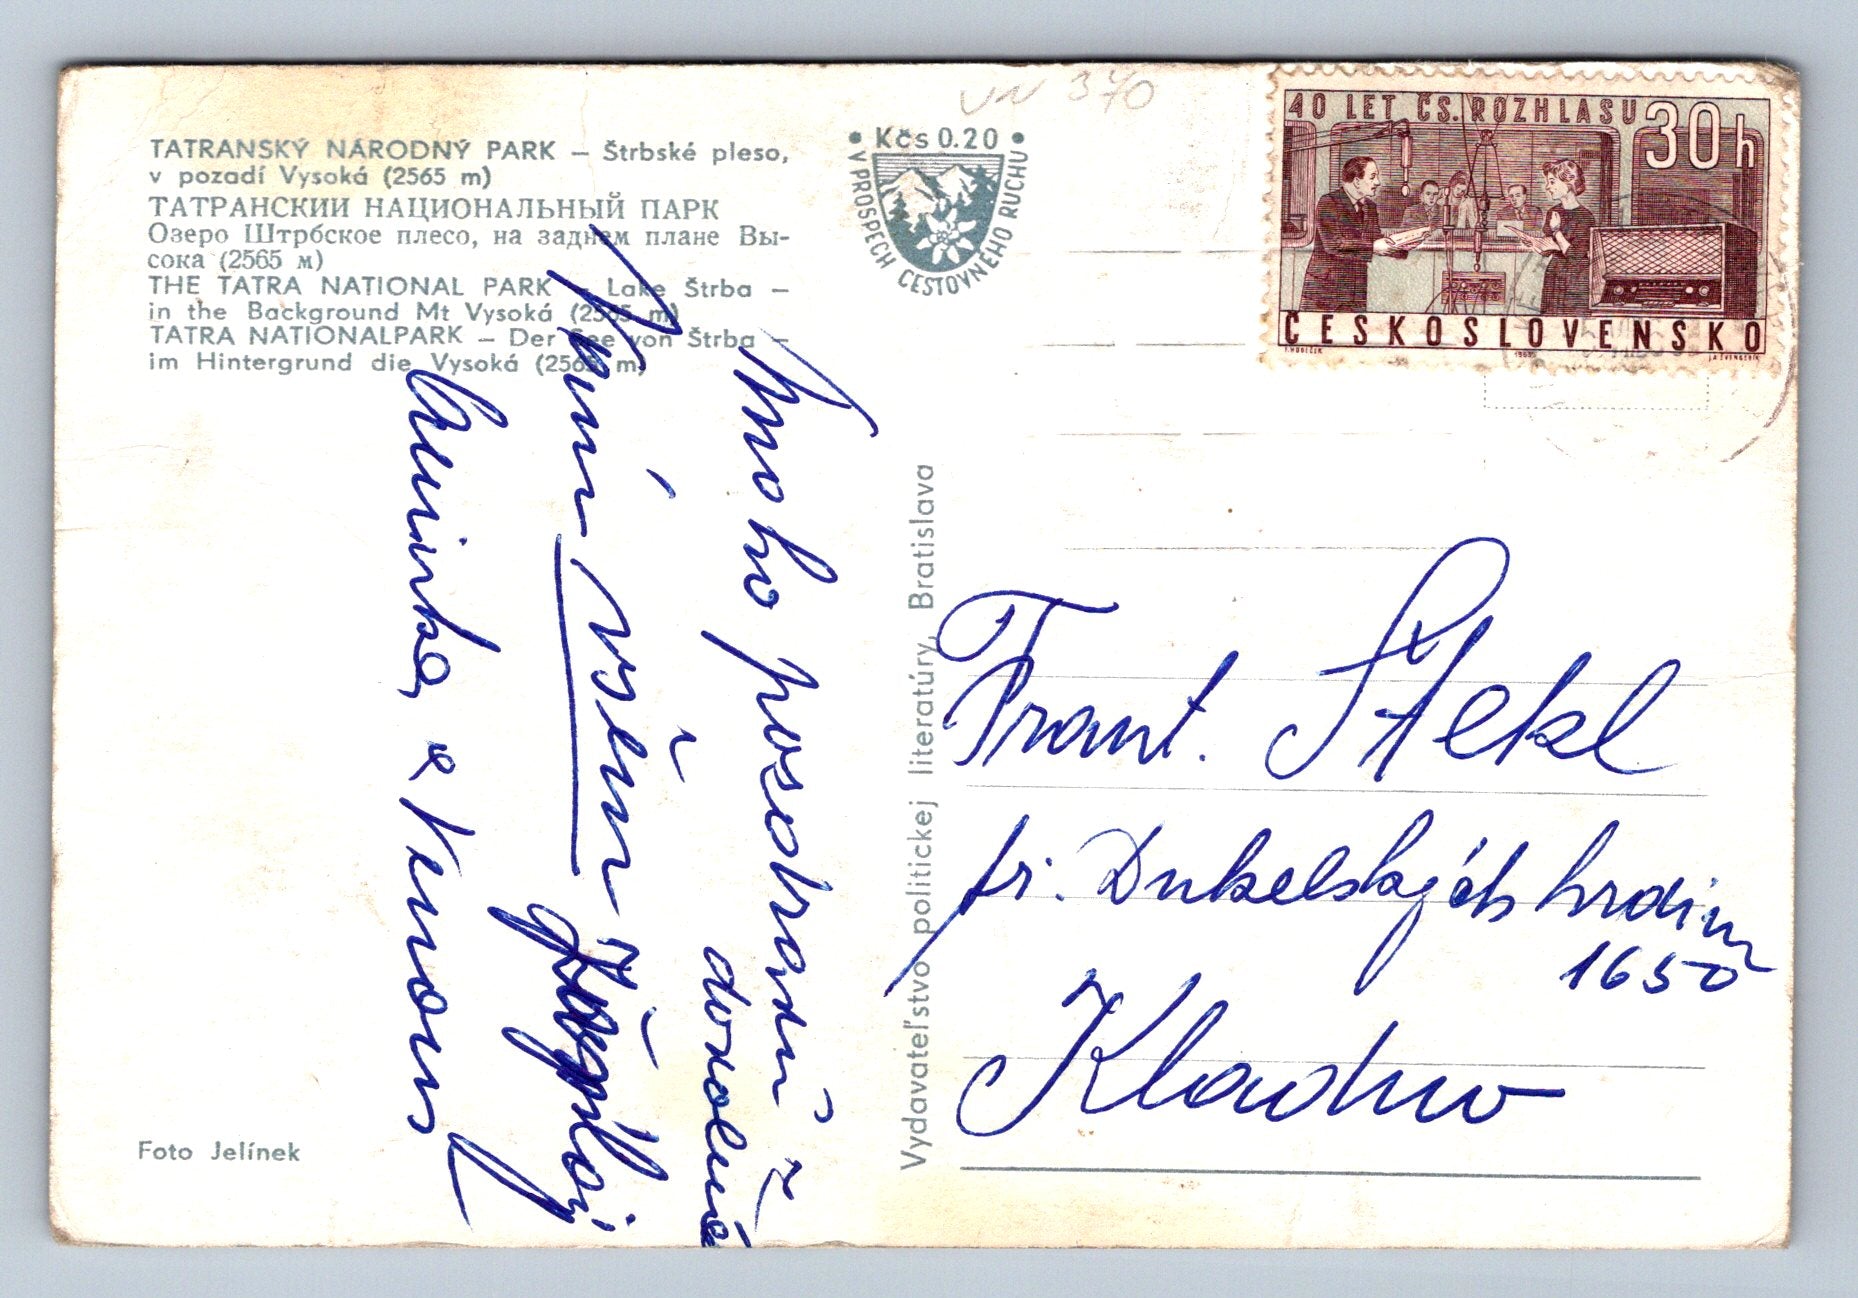 VN 370
TATRANSKÝ NÁRODNÝ PARK – Štrbské pleso,
v pozadí Vysoká (2565 m)
ТАТРАНСКИИ НАЦИОНАЛЬНЫЙ ПАРК
Озеро Штрбское плесо, на заднем плане Вы-
сока (2565 м)
THE TATRA NATIONAL PARK – Lake Štrba –
in the Background Mt Vysoká (2565 m)
TATRA NATIONALPARK – Der See von Štrba –
im Hintergrund die Vysoká (2565 m)
• Kčs 0.20 •
V PROSPECH CESTOVNÉHO RUCHU
40 LET ČS. ROZHLASU 30h
ČESKOSLOVENSKO
1963
Mnoho pozdravů z
dovolené
Vám všem
a
Vydavateľstvo politickej literatúry, Bratislava
Frant. Štekl
Dukelských hrdinů
1650
Kladno
Foto Jelínek